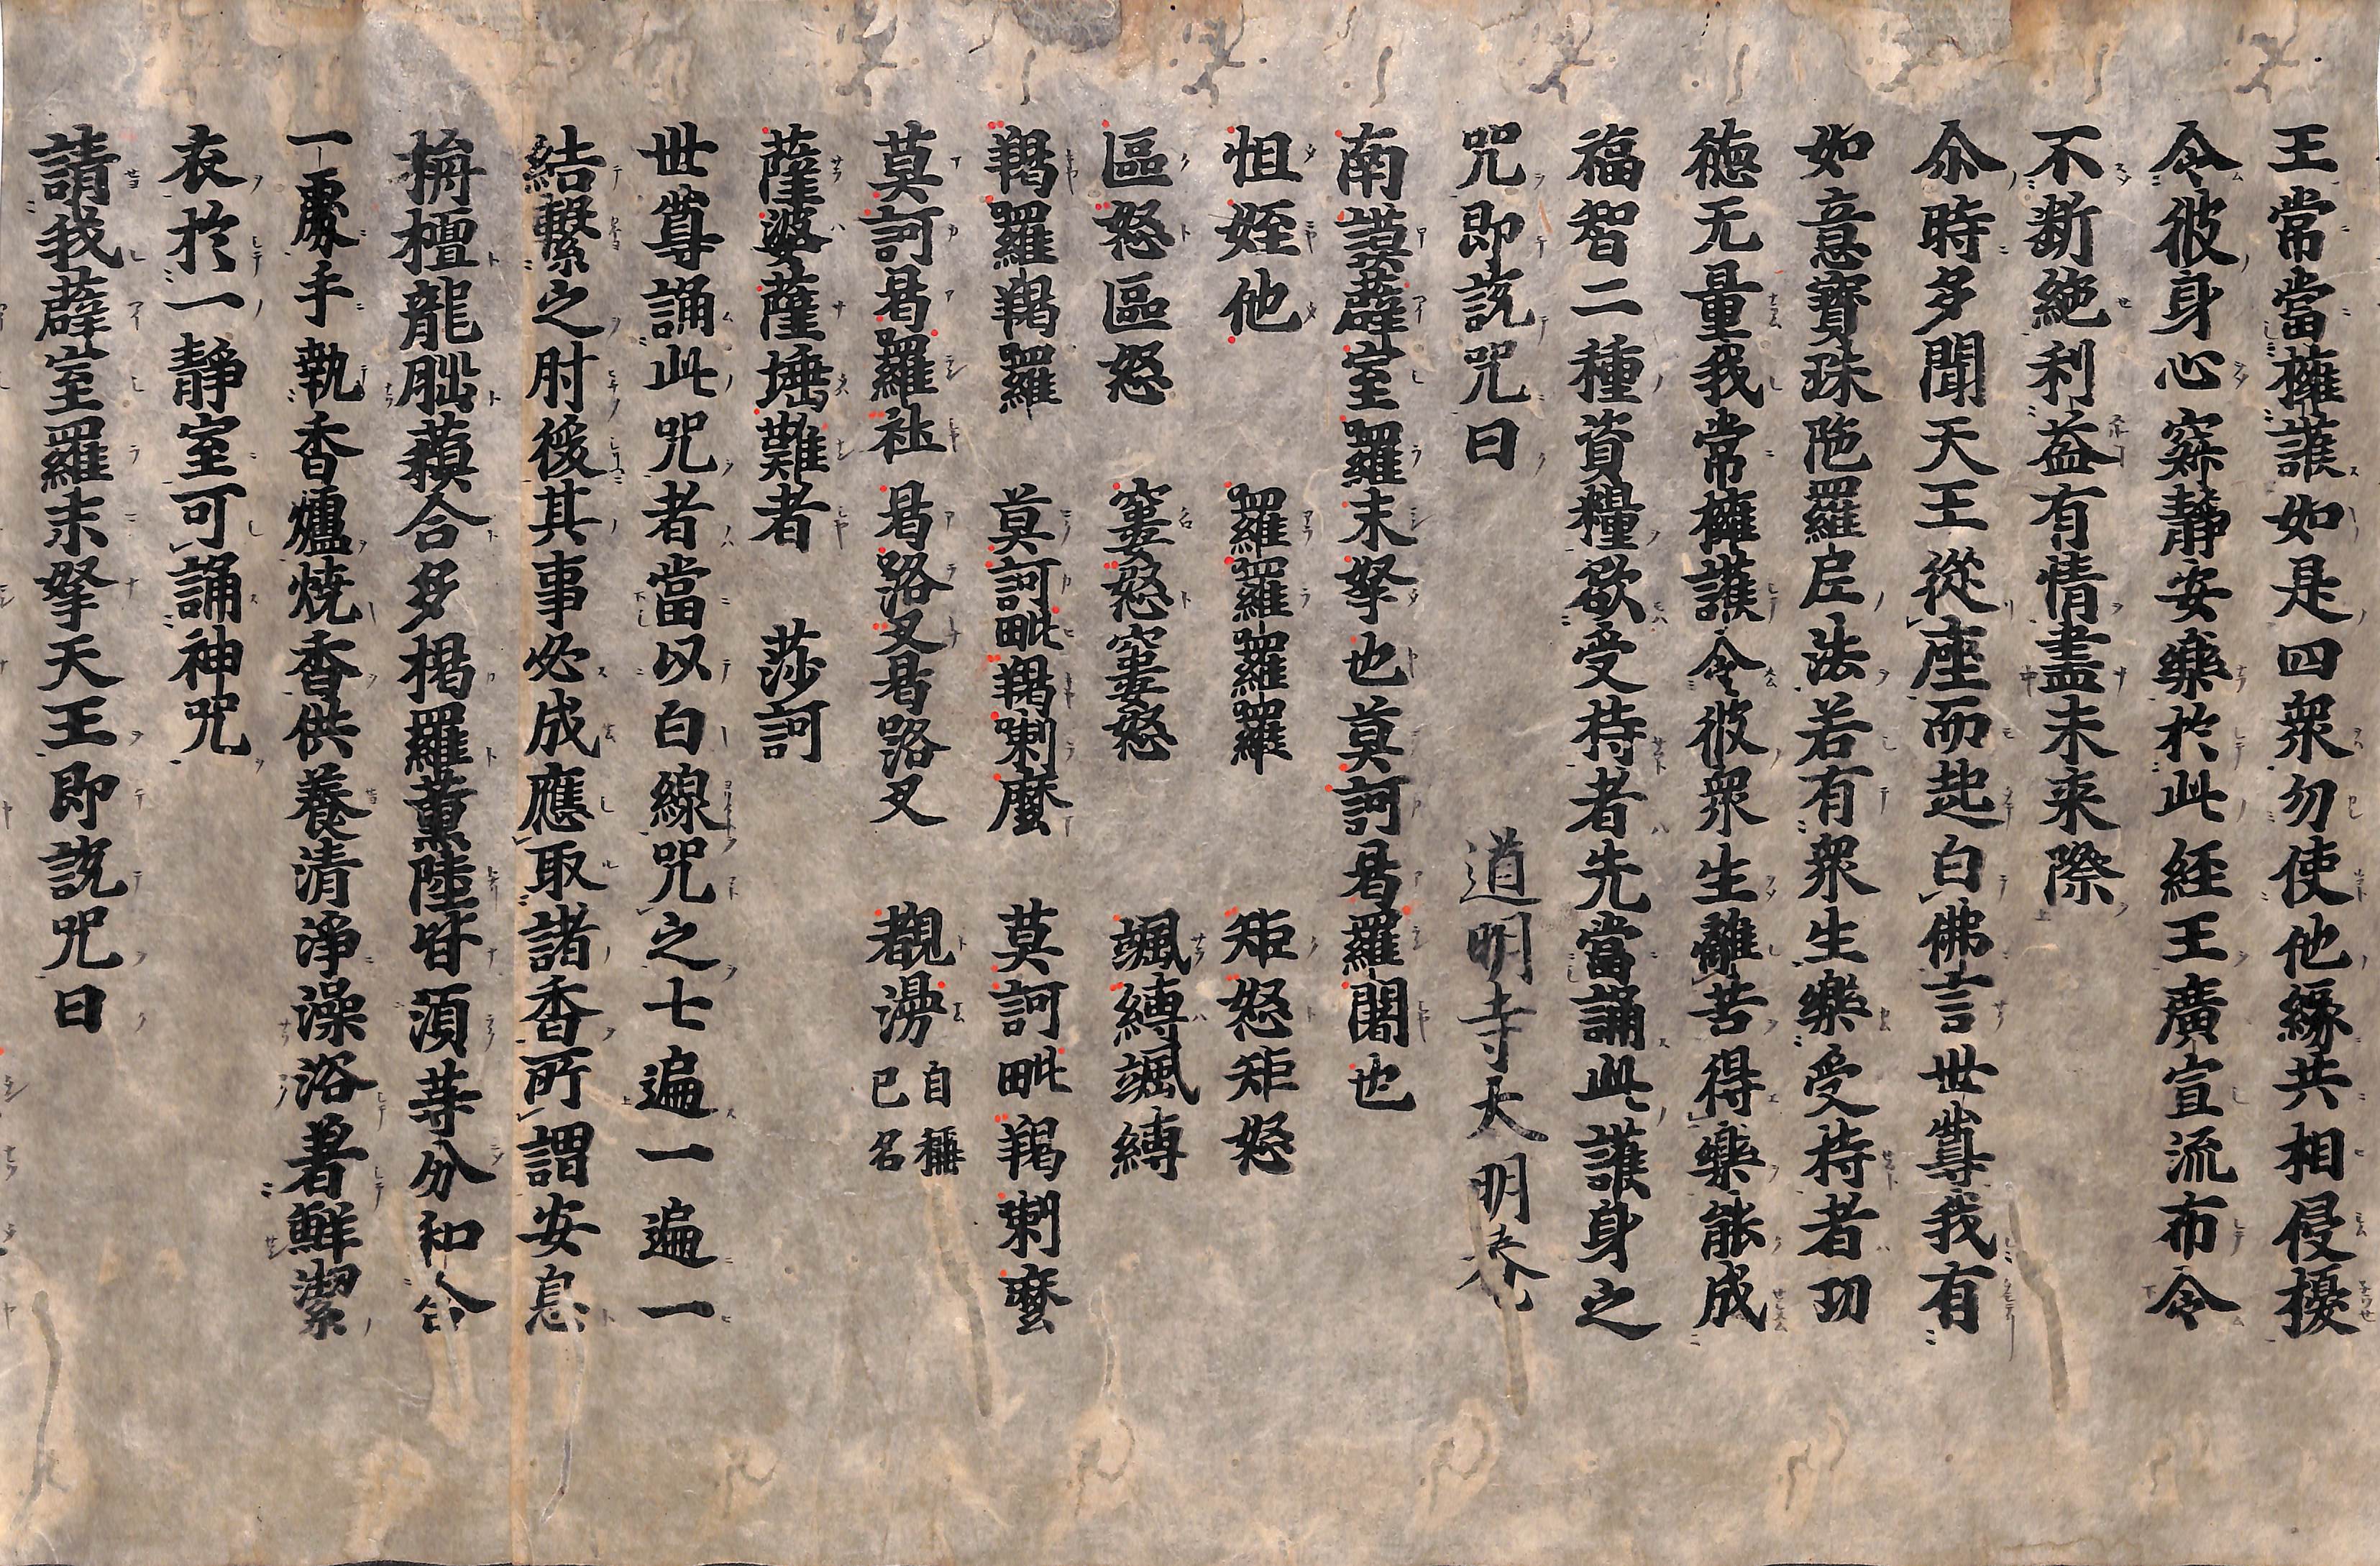 王常當擁護如是四衆勿使他緣共相侵擾
令彼身心寂靜安樂於此經王廣宣流布令
不斷絶利益有情盡未来際
尒時多聞天王從座而起白佛言世尊我有
如意寶珠陁羅尼法若有衆生樂受持者功
德无量我常擁護令彼衆生離苦得樂能成
福智二種資糧欲受持者先當誦此護身之
咒即説咒曰
道明寺大明春
南謨薜室羅末拏也莫訶曷羅闍也
怛姪他 羅羅羅羅 矩怒矩怒
區怒區怒 窶怒窶怒 颯縛颯縛
羯羅羯羅 莫訶毗羯喇麼 莫訶毗羯剌麼
莫訶曷羅社 曷路叉曷路叉 覩漫 自稱己名
薩婆薩埵難者 莎訶
世尊誦此咒者當以白線咒之七遍一遍一
結繫之肘後其事必成應取諸香所謂安息
栴檀龍腦蘓合多揭羅薰陸皆須等分和合
一處手執香爐焼香供養清淨澡浴著鮮潔
衣於一靜室可誦神咒
請我薜室羅末拏天王即説咒曰